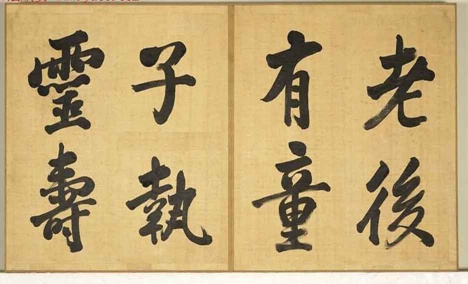 老後
有童
子執
靈壽